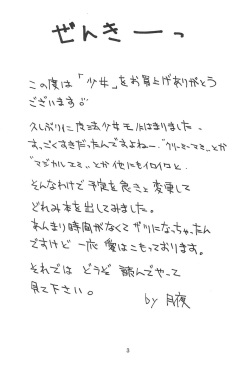 ぜんきーっ
この度は「少女」をお買上げありがとう
ございます。
久しぶりに魔法少女モノにはまりました、
すっごくすきだったんですよねー、"クリーミーマミ"とか
"マジカルエミ"とか他にもイロイロと。
そんなわけで予定を急きょ変更して
どれみ本を出してみました。
あんまり時間がなくてガリになっちゃったん
ですけど一応愛はこもっております。
それでは どうぞ 読んでやって
見て下さい。
by 月夜
3